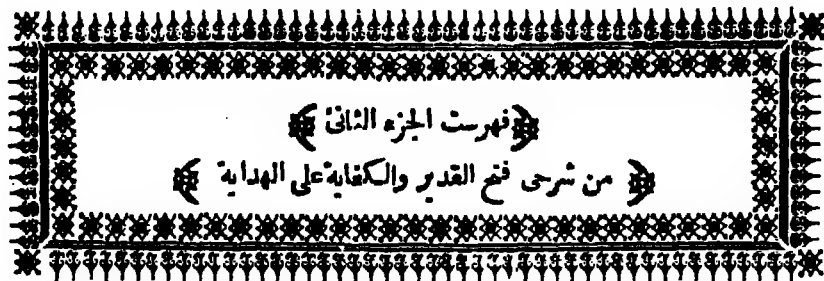 ﴿فهرست الجزء الثانى﴾
﴿من شرحى فتح القدير والكفاية على الهداية﴾